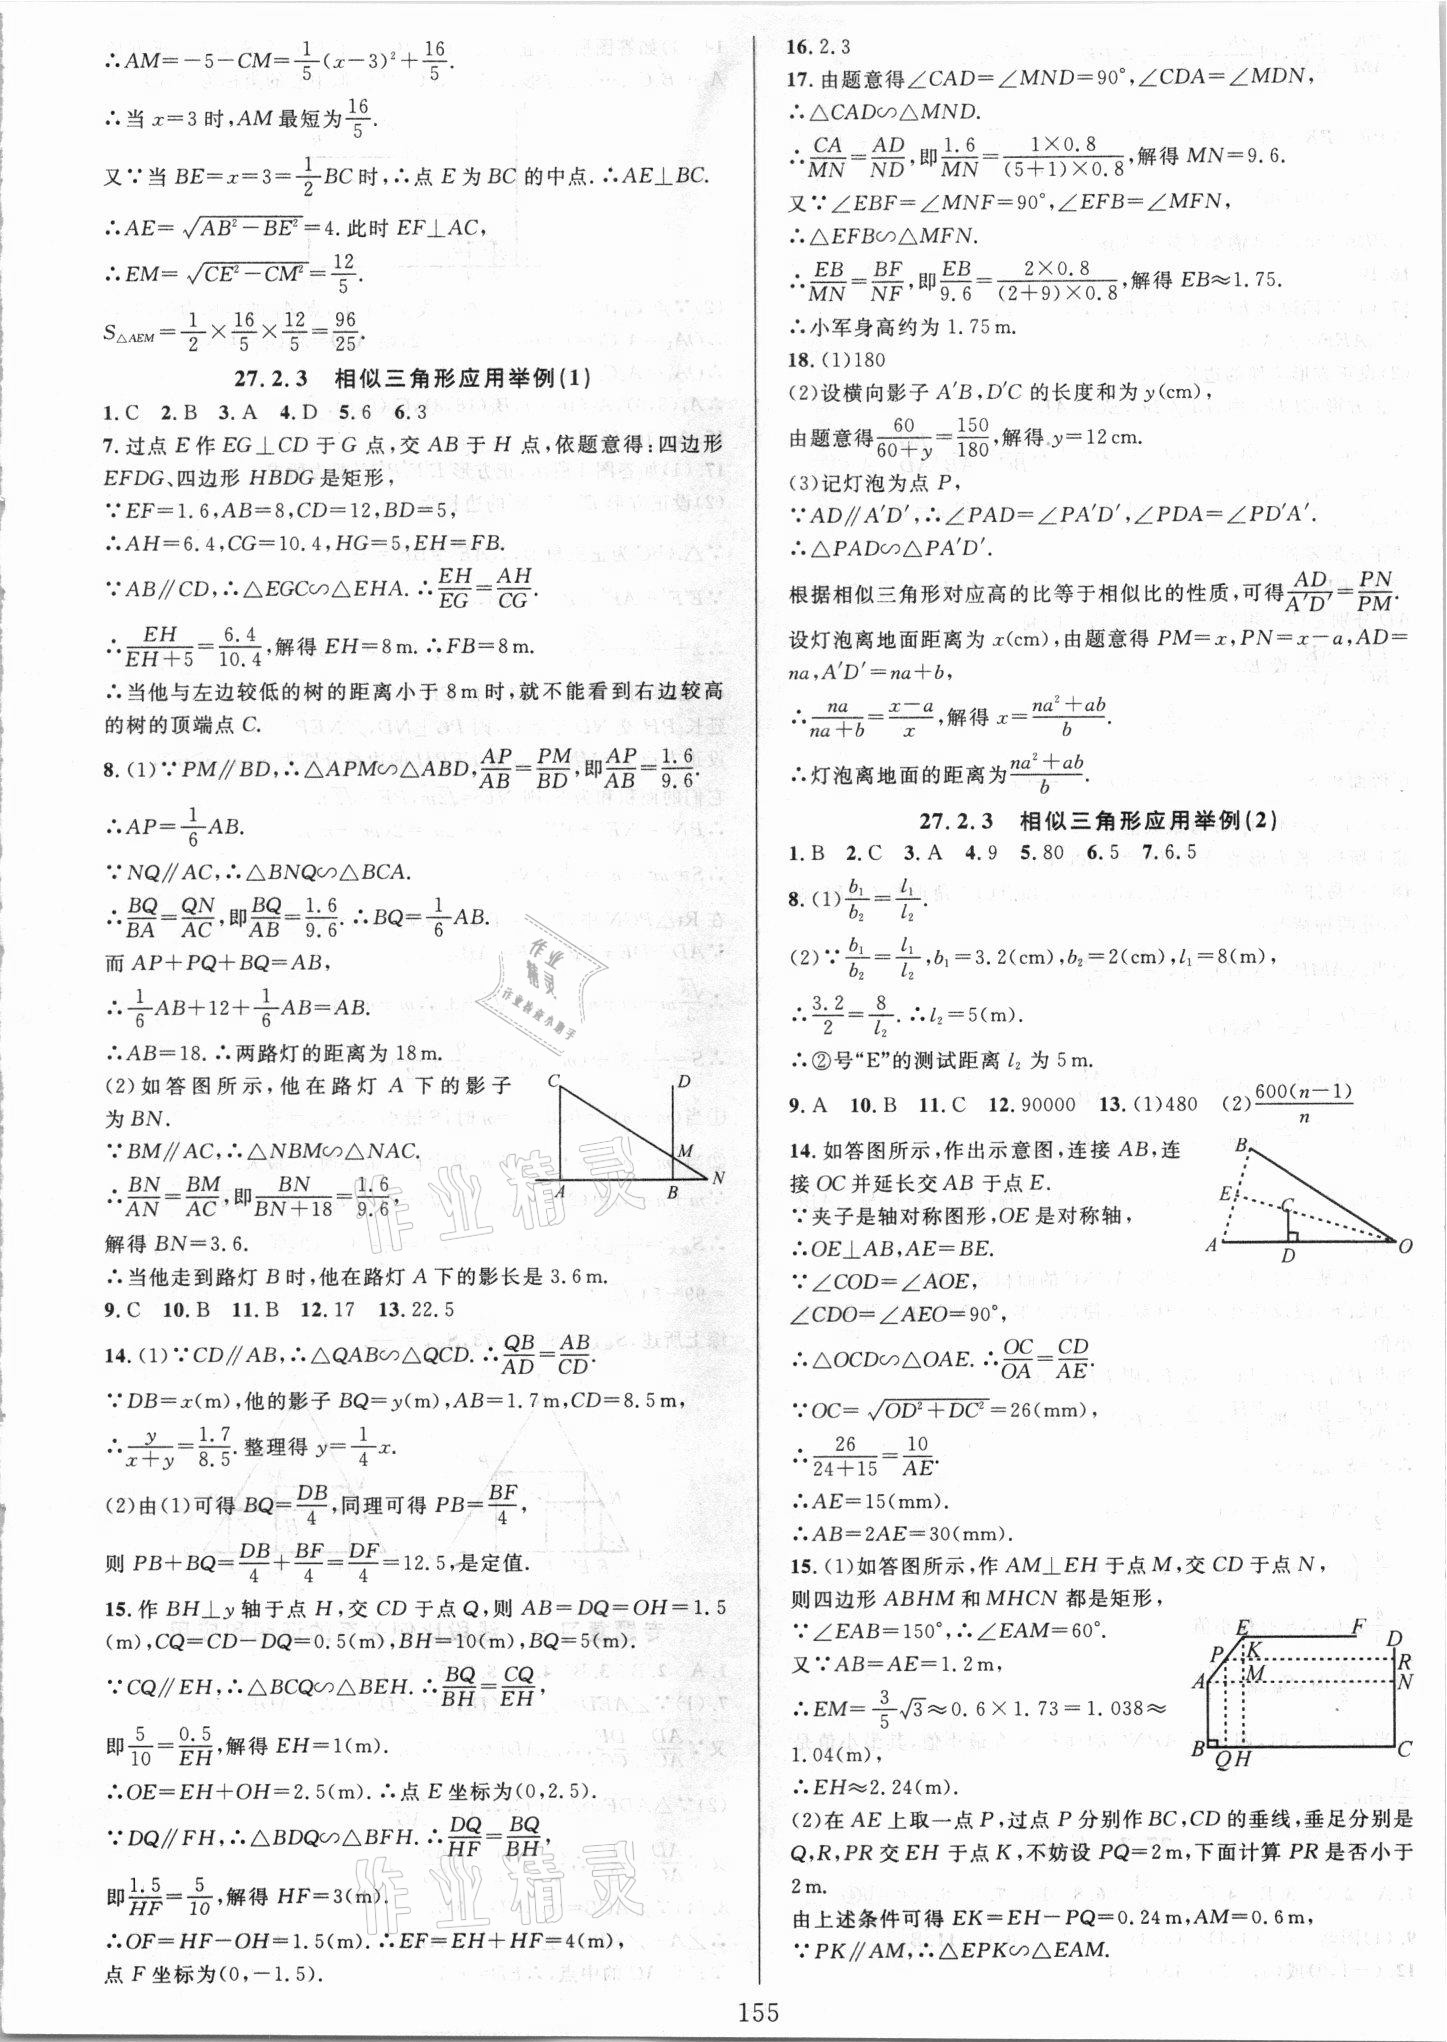 ∴AM=-5-CM=1/5(x-3)²+16/5.
∴当 x=3 时,AM 最短为16/5.
又∵当 BE=x=3=1/2BC 时,∴点 E 为 BC 的中点.∴AE⊥BC.
∴AE=√(AB²-BE²)=4.此时 EF⊥AC,
∴EM=√(CE²-CM²)=12/5.
S△AEM=1/2×16/5×12/5=96/25.
27.2.3 相似三角形应用举例(1)
1.C 2.B 3.A 4.D 5.6 6.3
7.过点 E 作 EG⊥CD 于 G 点,交 AB 于 H 点,依题意得:四边形
EFDG、四边形 HBDG 是矩形,
∵EF=1.6,AB=8,CD=12,BD=5,
∴AH=6.4,CG=10.4,HG=5,EH=FB.
∵AB∥CD,∴△EGC∽△EHA.∴EH/EG=AH/CG.
∴EH/(EH+5)=6.4/10.4,解得 EH=8m.∴FB=8m.
∴当他与左边较低的树的距离小于 8m 时,就不能看到右边较高
的树的顶端点 C.
8.(1)∵PM∥BD,∴△APM∽△ABD,AP/AB=PM/BD,即AP/AB=1.6/9.6.
∴AP=1/6AB.
∵NQ∥AC,∴△BNQ∽△BCA.
∴BQ/BA=QN/AC,即BQ/AB=1.6/9.6.∴BQ=1/6AB.
而 AP+PQ+BQ=AB,
∴1/6AB+12+1/6AB=AB.
∴AB=18.∴两路灯的距离为 18m.
(2)如答图所示,他在路灯 A 下的影子
为 BN.
∵BM∥AC,∴△NBM∽△NAC.
∴BN/AN=BM/AC,即BN/(BN+18)=1.6/9.6,
解得 BN=3.6.
∴当他走到路灯 B 时,他在路灯 A 下的影长是 3.6m.
C D M A B N
9.C 10.B 11.B 12.17 13.22.5
14.(1)∵CD∥AB,∴△QAB∽△QCD.∴QB/AD=AB/CD.
∵DB=x(m),他的影子 BQ=y(m),AB=1.7m,CD=8.5m,
∴y/(x+y)=1.7/8.5.整理得 y=1/4x.
(2)由(1)可得 BQ=DB/4,同理可得 PB=BF/4,
则 PB+BQ=DB/4+BF/4=DF/4=12.5,是定值.
15.作 BH⊥y 轴于点 H,交 CD 于点 Q,则 AB=DQ=OH=1.5
(m),CQ=CD-DQ=0.5(m),BH=10(m),BQ=5(m).
∵CQ∥EH,∴△BCQ∽△BEH.∴BQ/BH=CQ/EH,
即5/10=0.5/EH,解得 EH=1(m).
∴OE=EH+OH=2.5(m).∴点 E 坐标为(0,2.5).
∵DQ∥FH,∴△BDQ∽△BFH.∴DQ/HF=BQ/BH,
即1.5/HF=5/10,解得 HF=3(m).
∴OF=HF-OH=1.5(m).∴EF=EH+HF=4(m),
点 F 坐标为(0,-1.5).
16.2.3
17.由题意得∠CAD=∠MND=90°,∠CDA=∠MDN,
∴△CAD∽△MND.
∴CA/MN=AD/ND,即1.6/MN=(1×0.8)/((5+1)×0.8),解得 MN=9.6.
又∵∠EBF=∠MNF=90°,∠EFB=∠MFN,
∴△EFB∽△MFN.
∴EB/MN=BF/NF,即EB/9.6=(2×0.8)/((2+9)×0.8),解得 EB≈1.75.
∴小军身高约为 1.75m.
18.(1)180
(2)设横向影子 A′B,D′C 的长度和为 y(cm),
由题意得60/(60+y)=150/180,解得 y=12cm.
(3)记灯泡为点 P,
∵AD∥A′D′,∴∠PAD=∠PA′D′,∠PDA=∠PD′A′.
∴△PAD∽△PA′D′.
根据相似三角形对应高的比等于相似比的性质,可得AD/A′D′=PN/PM.
设灯泡离地面距离为 x(cm),由题意得 PM=x,PN=x-a,AD=
na,A′D′=na+b,
∴na/(na+b)=(x-a)/x,解得 x=(na²+ab)/b.
∴灯泡离地面的距离为(na²+ab)/b.
27.2.3 相似三角形应用举例(2)
1.B 2.C 3.A 4.9 5.80 6.5 7.6.5
8.(1)b₁/b₂=l₁/l₂.
(2)∵b₁/b₂=l₁/l₂,b₁=3.2(cm),b₂=2(cm),l₁=8(m),
∴3.2/2=8/l₂.∴l₂=5(m).
∴②号“E”的测试距离 l₂ 为 5m.
9.A 10.B 11.C 12.90000 13.(1)480 (2)600(n-1)/n
14.如答图所示,作出示意图,连接 AB,连
接 OC 并延长交 AB 于点 E.
∵夹子是轴对称图形,OE 是对称轴,
∴OE⊥AB,AE=BE.
∵∠COD=∠AOE,
∠CDO=∠AEO=90°,
∴△OCD∽△OAE.∴OC/OA=CD/AE.
∵OC=√(OD²+DC²)=26(mm),
∴26/(24+15)=10/AE.
∴AE=15(mm).
∴AB=2AE=30(mm).
B E C A D O
15.(1)如答图所示,作 AM⊥EH 于点 M,交 CD 于点 N,
则四边形 ABHM 和 MHCN 都是矩形,
∵∠EAB=150°,∴∠EAM=60°.
又∵AB=AE=1.2m,
∴EM=3/5√3≈0.6×1.73=1.038≈
1.04(m),
∴EH≈2.24(m).
E F D P K R A M N B Q H C
(2)在 AE 上取一点 P,过点 P 分别作 BC,CD 的垂线,垂足分别是
Q,R,PR 交 EH 于点 K,不妨设 PQ=2m,下面计算 PR 是否小于
2m.
由上述条件可得 EK=EH-PQ=0.24m,AM=0.6m,
∵PK∥AM,∴△EPK∽△EAM.
155
作业精灵
作业精灵
作业精灵